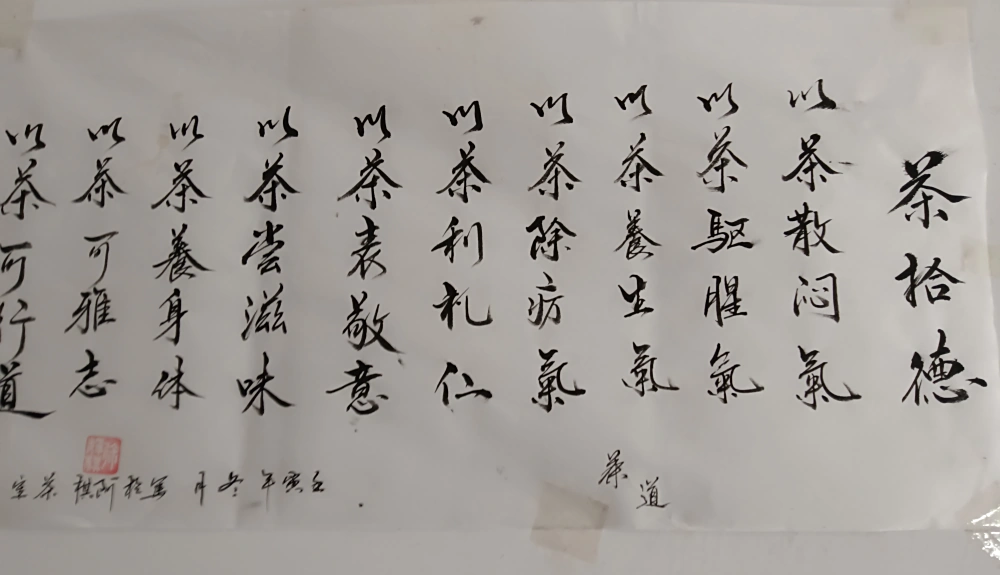 茶拾德
以茶散闷氣
以茶驱腥氣
以茶養生氣
以茶除疠氣
以茶利礼仁
以茶表敬意
以茶尝滋味
以茶養身体
以茶可雅志
以茶可行道
茶道
壬寅年冬月 写於阿棋茶室